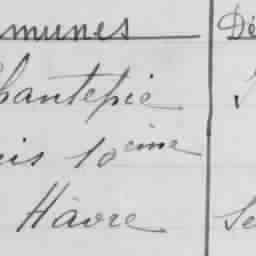 mmunes Dé
hantepie
is 10ème
Hâvre Se